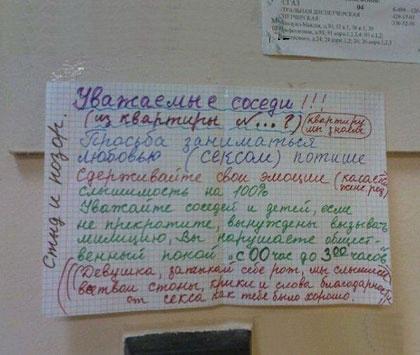 04
Уважаемые соседи!!!
(из квартиры №...?) (квартиру мы знаем)
Просьба заниматься
любовью (сексом) потише
Сдерживайте свои эмоции
слышимость на 100%
Уважайте соседей и детей, если
не прекратите, вынуждены вызывать
милицию, Вы нарушаете общест-
венный покой с 00 час до 3 00 часов
(Девушка, затыкай себе рот, мы слышим
все твои стоны, крики и слова благодарности
от секса как тебе было хорошо.)
Стыд и позор.